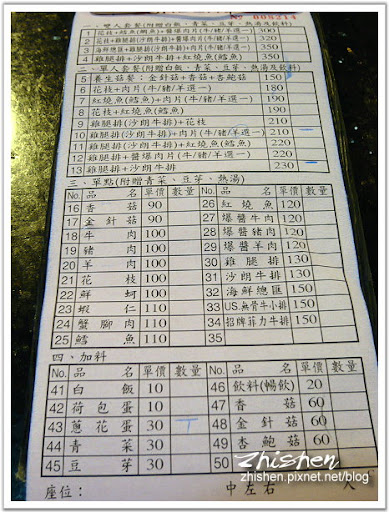 No 006214
一、雙人套餐(附贈白飯、青菜、豆芽、熱湯及飲料)
1 花枝+紅燒魚(鱈魚)+醬爆肉片(牛/豬/羊選一) 300
2 320
3 320
4 雞腿排(沙朗牛排)+花枝+紅燒魚(鱈魚) 350
二、單人套餐(附贈白飯、青菜、豆芽、熱湯及飲料)
5 養生菇餐:金針菇+香菇+杏鮑菇 150
6 花枝+肉片(牛/豬/羊選一) 180
7 紅燒魚(鱈魚)+肉片(牛/豬/羊選一) 190
8 花枝+紅燒魚(鱈魚) 190
9 雞腿排(沙朗牛排)+花枝 210
10 雞腿排(沙朗牛排)+肉片(牛/豬/羊選一) 210
11 雞腿排(沙朗牛排)+紅燒魚(鱈魚) 220
12 雞腿排+醬爆肉片(牛/豬/羊選一) 220
13 雞腿排+沙朗牛排 230
三、單點(附贈青菜、豆芽、熱湯)
No. 品名 單價 數量 No. 品名 單價 數量
16 香菇 90 26 紅燒魚 120
17 金針菇 90 27 爆醬牛肉 120
18 牛肉 100 28 爆醬豬肉 120
19 豬肉 100 29 爆醬羊肉 120
20 羊肉 100 30 雞腿排 130
21 花枝 100 31 沙朗牛排 130
22 鮮蚵 100 32 海鮮總匯 150
23 蝦仁 110 33 US.無骨牛小排 150
24 蟹腳肉 110 34 招牌菲力牛排 150
25 鱈魚 110 35
四、加料
No. 品名 單價 數量 No. 品名 單價 數量
41 白飯 10 46 飲料(暢飲) 20
42 荷包蛋 10 47 香菇 60
43 蔥花蛋 30 48 金針菇 60
44 青菜 30 49 杏鮑菇 60
45 豆芽 30 50
座位: 中左右 人
zhishen
zhishen.pixnet.net/blog